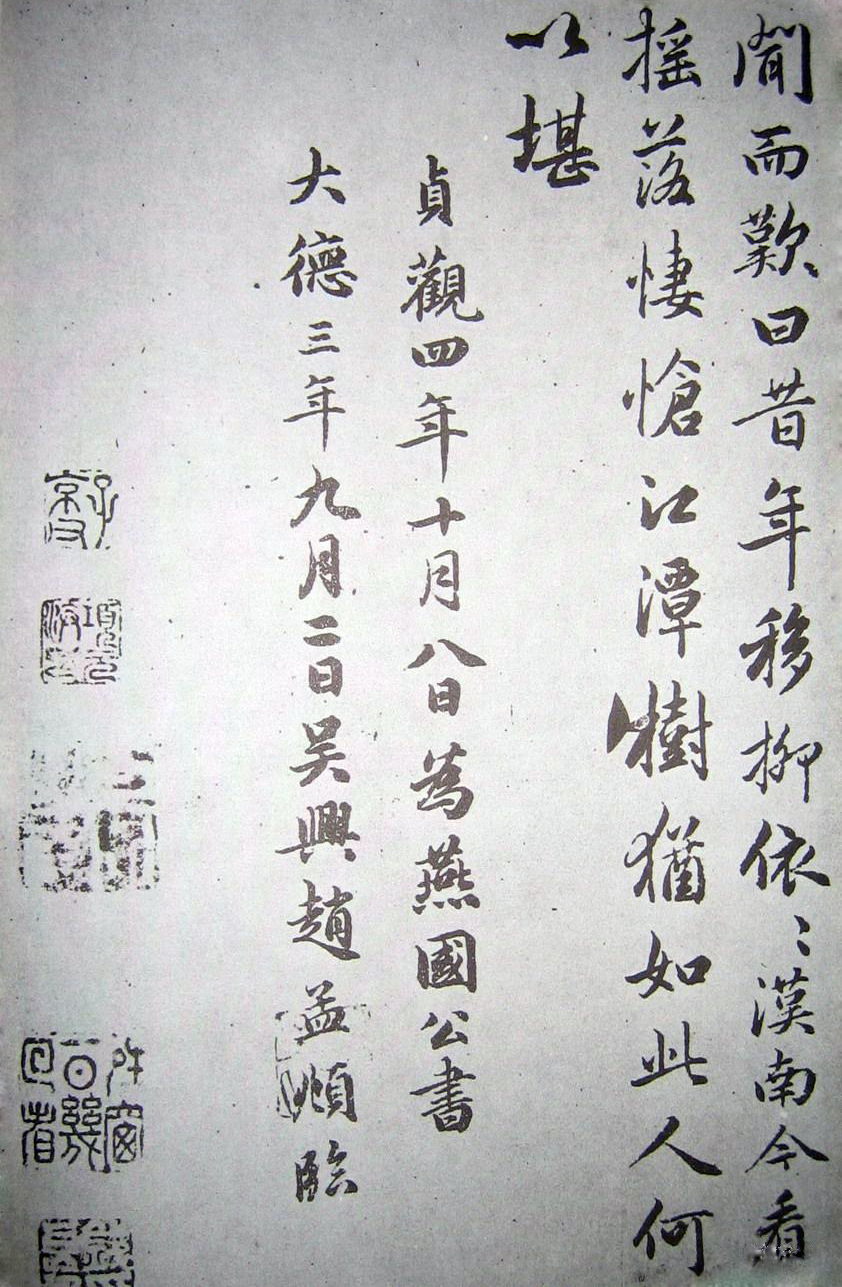 聞而歎曰昔年移柳依〻漢南今看
摇落悽愴江潭樹猶如此人何
以堪
貞觀四年十月八日為燕國公書
大德三年九月二日吴興趙孟頫臨